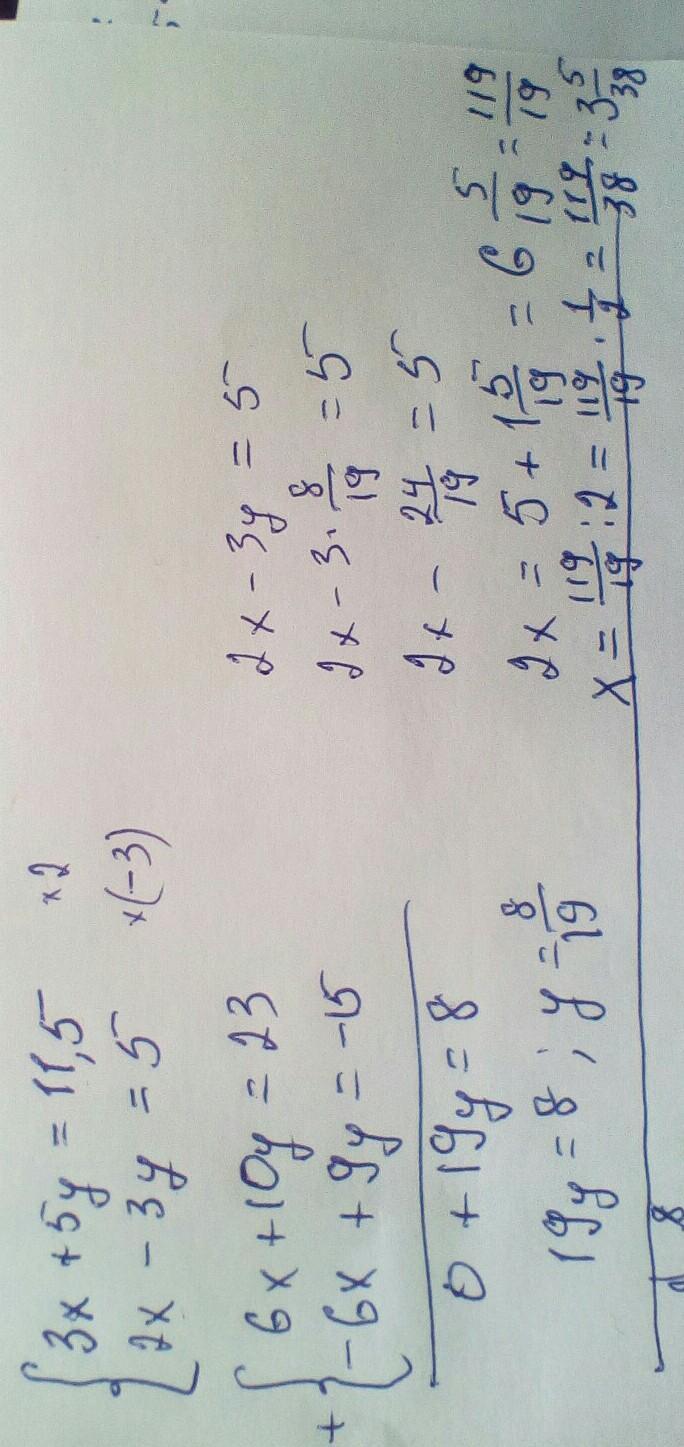 {3x + 5y = 11,5 ×2
2x - 3y = 5 ×(-3)
+ {6x + 10y = 23
-6x + 9y = -15
0 + 19y = 8
19y = 8 ; y = 8/19
2x - 3y = 5
2x - 3 · 8/19 = 5
2x - 24/19 = 5
2x = 5 + 1 5/19 = 6 5/19 = 119/19
x = 119/19 : 2 = 119/19 · 1/2 = 119/38 = 3 5/38
8